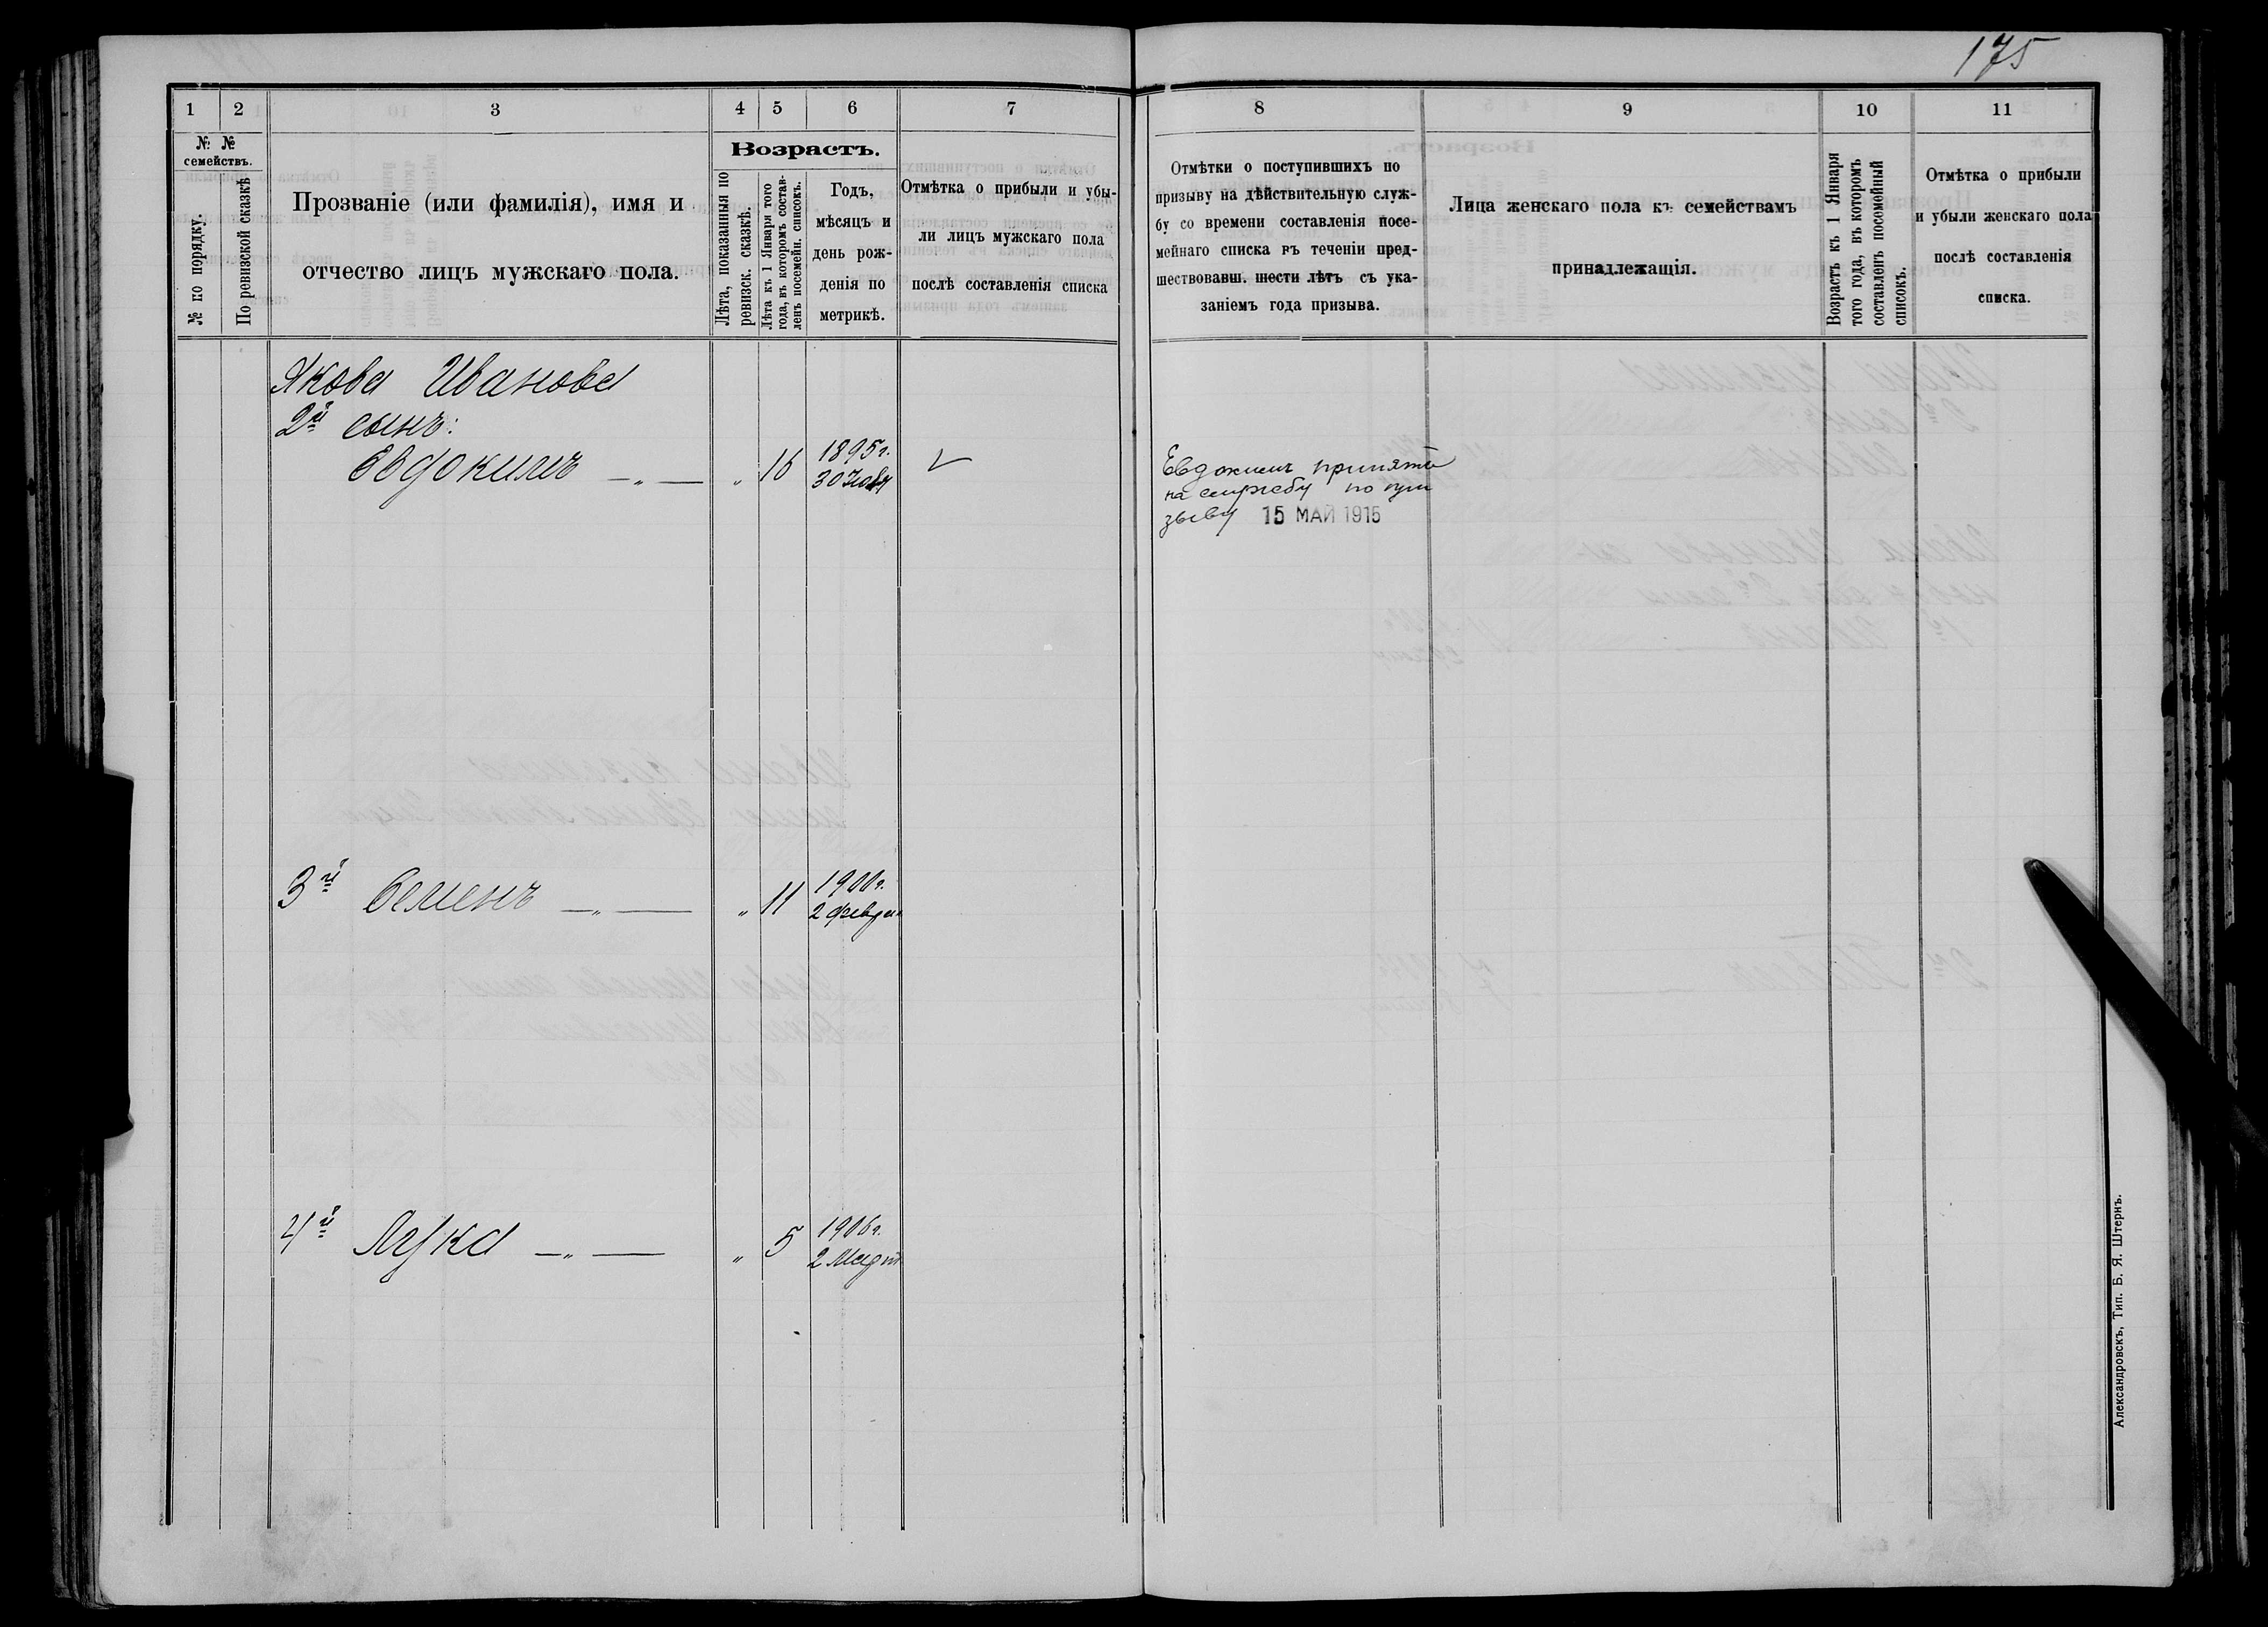 175
1 2 3 4 5 6 7
№ № семействъ.
№ по порядку.
По ревизской сказкѣ
Прозваніе (или фамилія), имя и
отчество лицъ мужскаго пола.
Возрастъ.
Лѣта, показанныя по
ревизск. сказкѣ.
Лѣта къ 1 Января того
года, въ которомъ состав-
ленъ посемейн. списокъ.
Годъ,
мѣсяцъ и
день рож-
денія по
метрикѣ.
Отмѣтка о прибыли и убы-
ли лицъ мужскаго пола
послѣ составленія списка
8 9 10 11
Отмѣтки о поступившихъ по
призыву на дѣйствительную служ-
бу со времени составленія посе-
мейнаго списка въ теченіи пред-
шествовавш. шести лѣтъ съ ука-
заніемъ года призыва.
Лица женскаго пола къ семействамъ
принадлежащія.
Возрастъ къ 1 Января
того года, въ которомъ
составленъ посемейный
списокъ.
Отмѣтка о прибыли
и убыли женскаго пола
послѣ составленія
списка.
Якова Иванова
2й сынъ:
Евдокимъ — „ — „ 16 1895 г.
30 Ноябр
Евдокимъ принятъ
на службу по при
зыву 15 МАЙ 1915
3й Семенъ — „ — „ 11 1900 г.
2 Феврал
4й Лука — „ — „ 5 1906 г.
2 Март
Александровскъ, Тип. Б. Я. Штернъ.